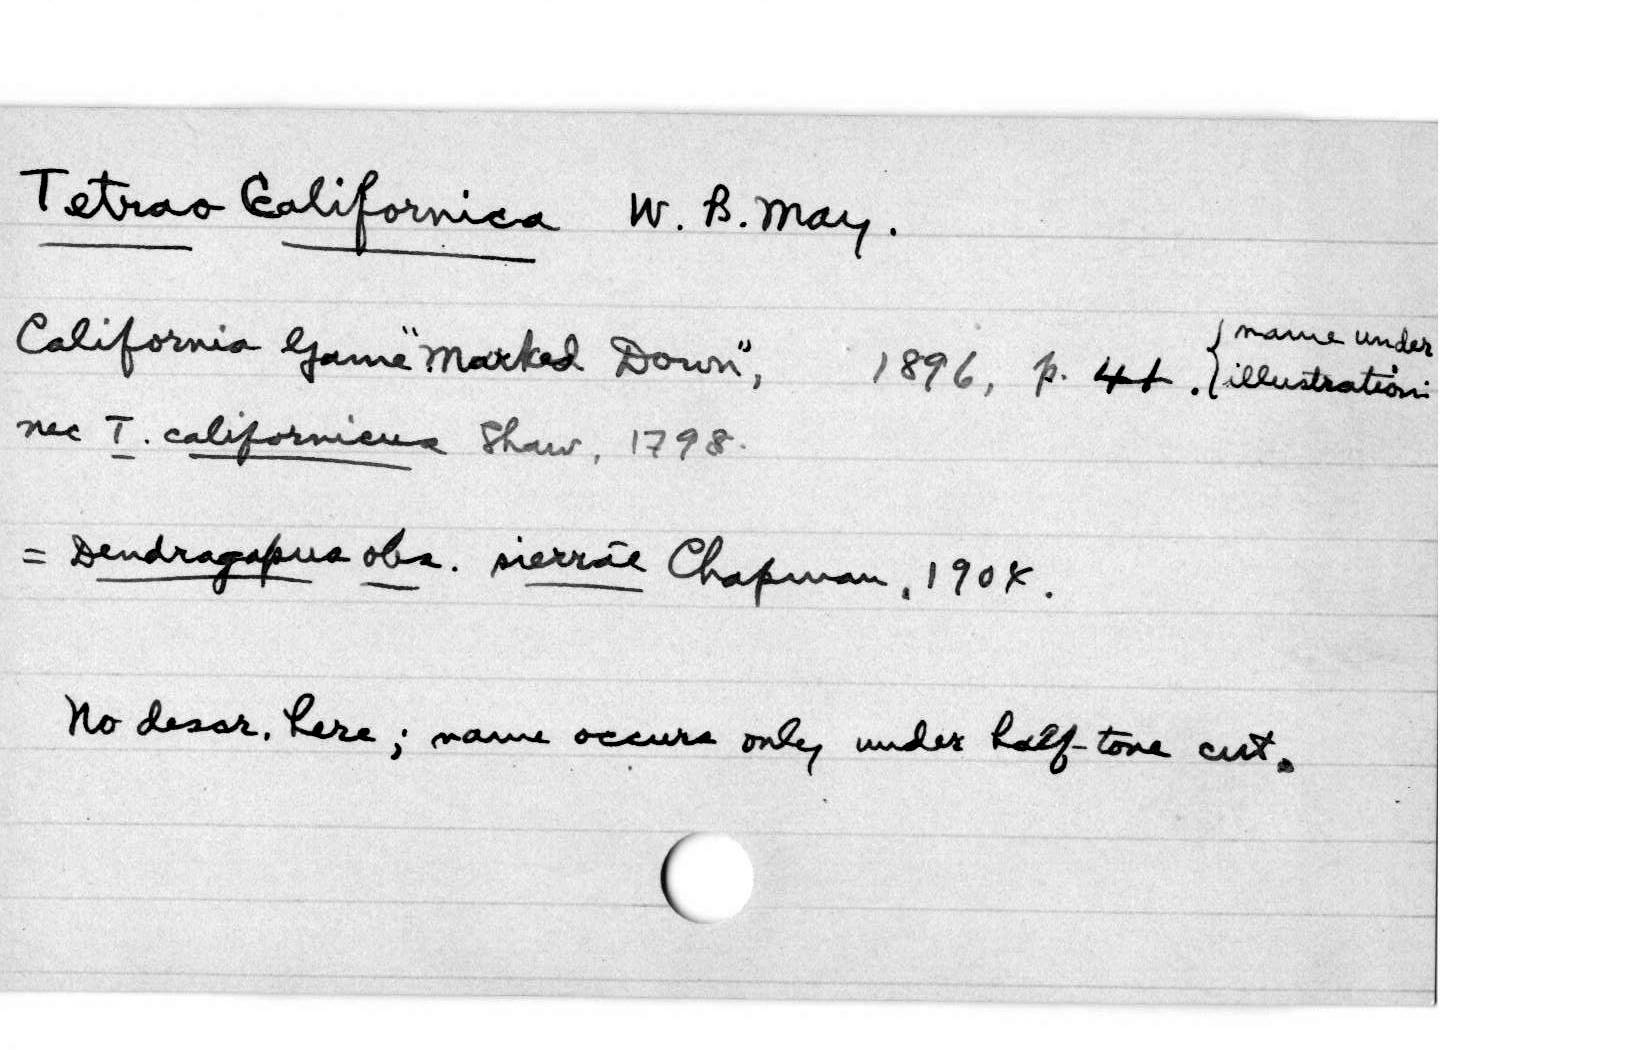 Tetrao Californica W. B. May.
California Game "Marked Down", 1896, p. 41. { name under
illustration.
nec T. californicus Shaw, 1798.
= Dendragapus obs. sierrae Chapman, 1904.
No descr. here; name occurs only under half-tone cut.